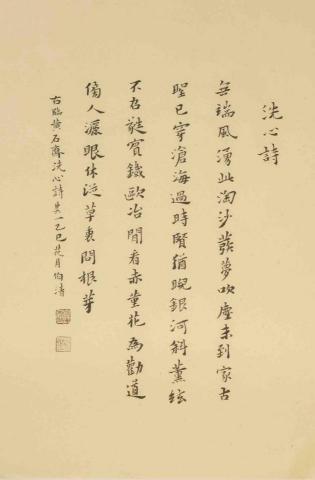 洗心詩
無端風湧此淘沙蕤夢吹塵未到家古
聖已穿滄海過時賢猶睨銀河斜薰絃
不名蕤賓鐵歐冶閒看赤堇花為勸道
傍人濯眼休從草裏問根芽
右臨黃石齋洗心詩其一乙巳花月伯清